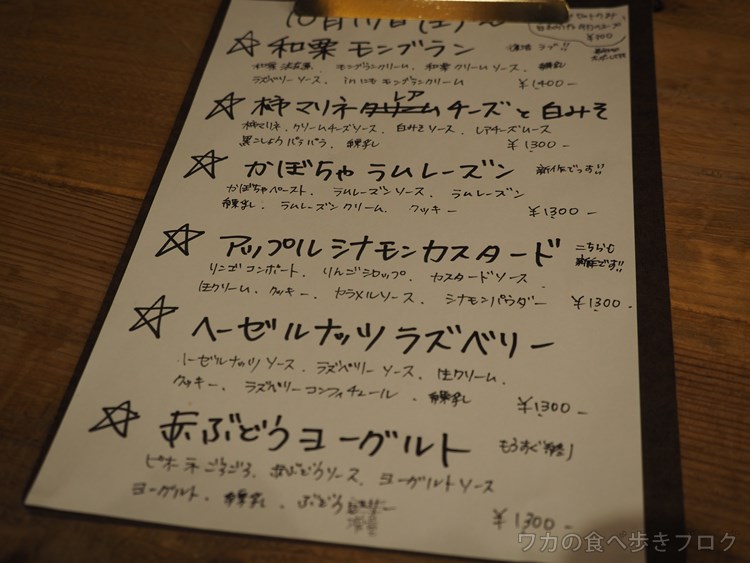 10月
(土)
¥100
☆和栗モンブラン 復活ラブ!!
モンブランクリーム、和栗クリームソース、練乳
ラズベリーソース、inにもモンブランクリーム ¥1,400-
☆柿マリネ レアチーズと白みそ
柿マリネ、クリームチーズソース、白みそソース、レアチーズムース
黒こしょうパラパラ、練乳 ¥1,300-
☆かぼちゃラムレーズン 新作でっす!!
かぼちゃペースト、ラムレーズンソース、ラムレーズン
練乳、ラムレーズンクリーム、クッキー ¥1300-
☆アップルシナモンカスタード こちらも新作です!!
リンゴコンポート、りんごシロップ、カスタードソース
生クリーム、クッキー、カラメルソース、シナモンパウダー ¥1300-
☆ヘーゼルナッツラズベリー
ヘーゼルナッツソース、ラズベリーソース、生クリーム、
クッキー、ラズベリーコンフィチュール、練乳 ¥1300-
☆赤ぶどうヨーグルト もうすぐ終り
ピオーネごろごろ、赤ぶどうソース、ヨーグルトソース
ヨーグルト、練乳、ぶどう
¥1300-
ワカの食べ歩きブログ